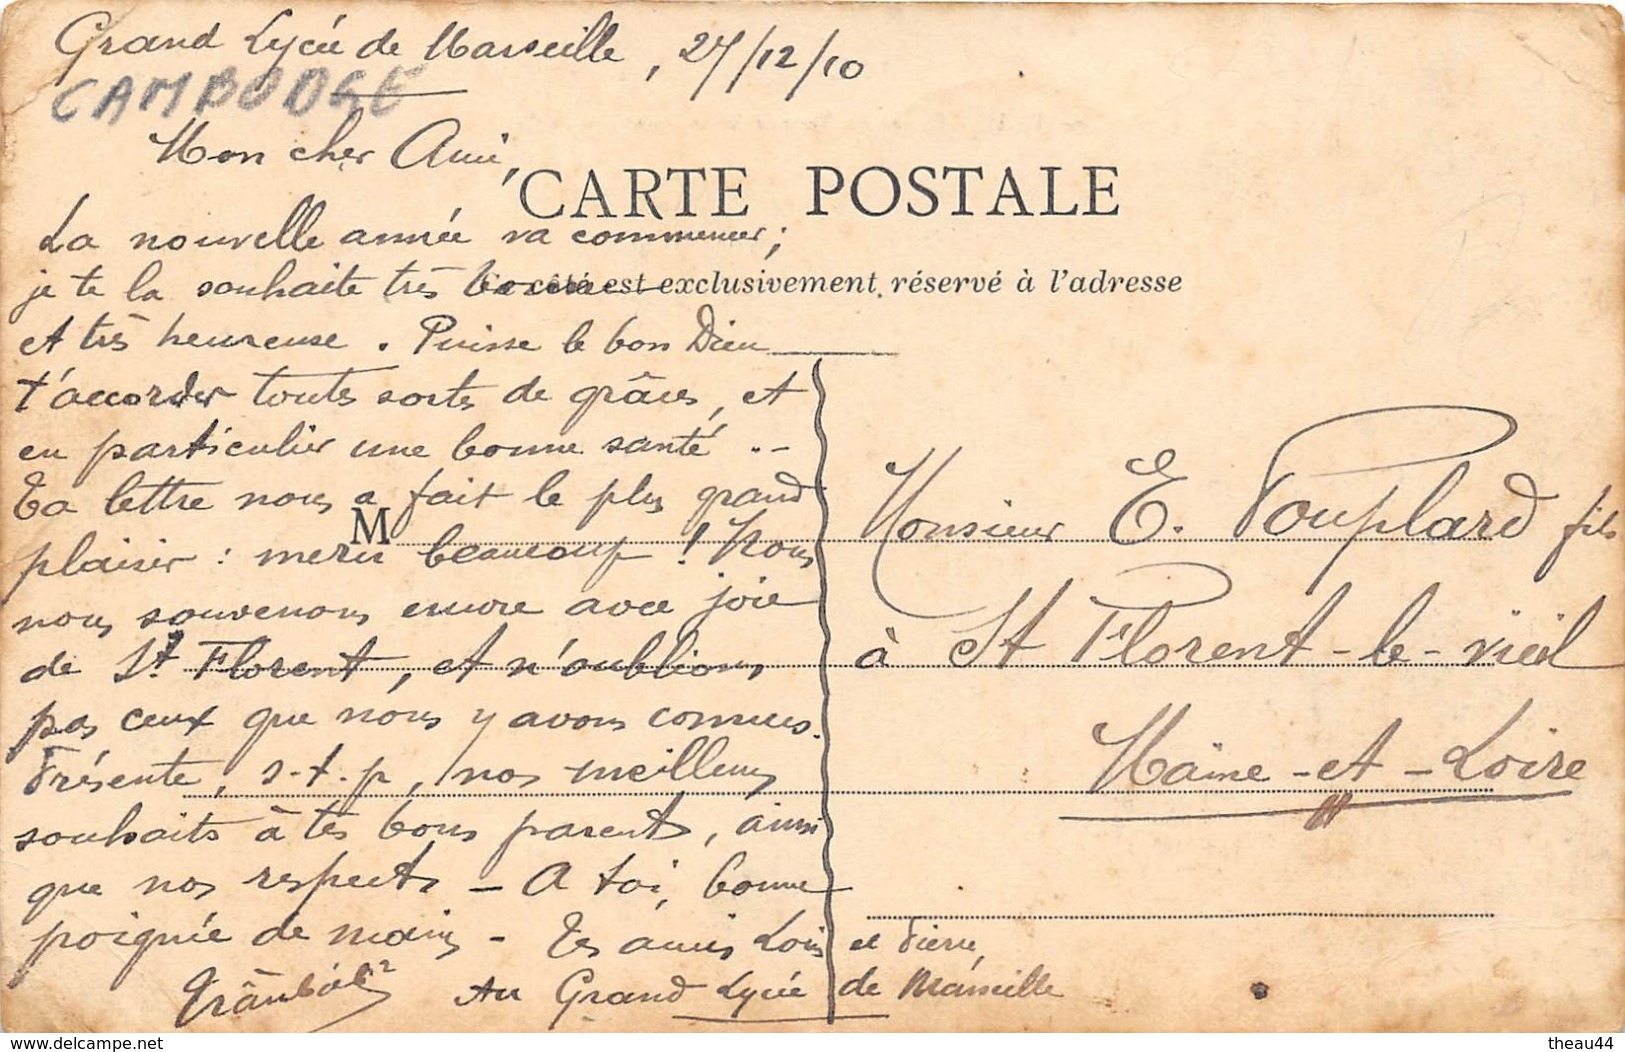 Grand Lycée de Marseille, 27/12/10
CAMBODGE
Mon cher Ami,
CARTE POSTALE
La nouvelle année va commencer;
Ce côté est exclusivement réservé à l'adresse
je te la souhaite très bonne
et très heureuse. Puisse le bon Dieu
t'accorder toutes sortes de grâces, et
en particulier une bonne santé..
Ta lettre nous a fait le plus grand
M
plaisir : merci beaucoup ! Nous
nous souvenons encore avec joie
de St Florent, et n'oublions
pas ceux que nous y avons connus.
Présente, s.t.p, nos meilleurs
souhaits à tes bons parents, ainsi
que nos respects - A toi, bonne
poignée de mains - Tes amis Louis et Pierre,
Au Grand Lycée de Marseille
Monsieur E. Pouplard fils
à St Florent-le-vieil
Maine-et-Loire
delcampe.net
theau44